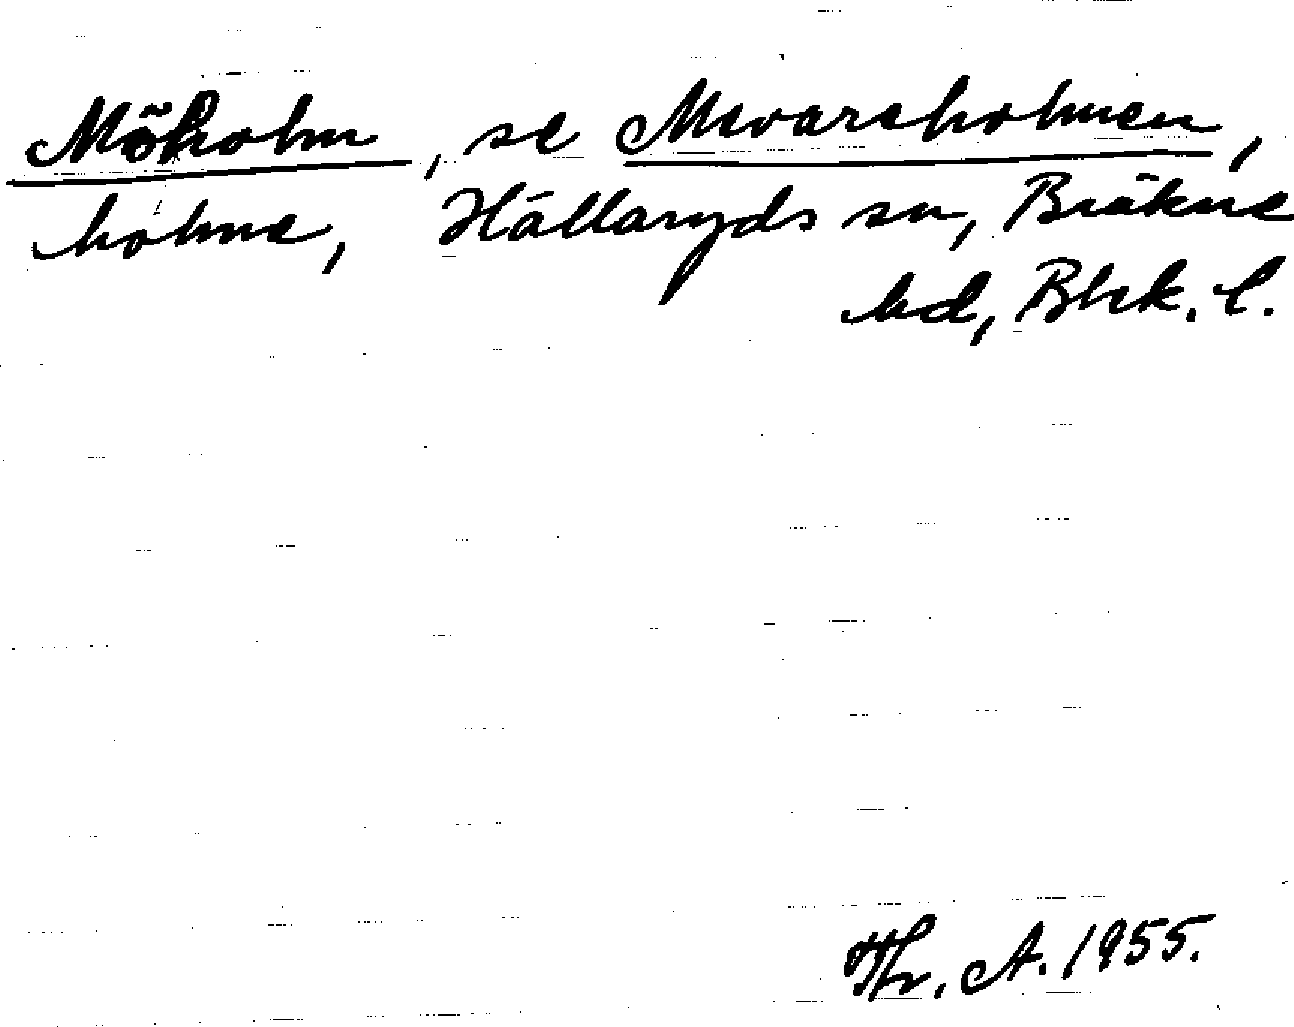 Möholm, se Mevareholmen,
holme, Hällaryds sn, Bräkne
hd, Blek. l.
Thr. A. 1955.